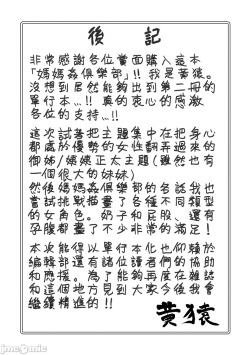 後記
非常感謝各位當面購入這本
「媽媽姦俱樂部」!! 我是黃猿。
沒想到居然能夠出到第二冊的
單行本…!! 真的衷心的感激
各位的支持…!!
這次試著把主題集中在把身心
都處於優勢的女性翻弄過來的
御姊/媽媽正太主題(雖然也有
一個很大的妹妹)
然後媽媽姦俱樂部的各話我也
嘗試挑戰描畫了各種不同類型
的女角色。奶子和屁股、還有
孕腹都畫了不少非常的滿足!
本次能得以單行本化也仰賴於
編輯部還有諸位讀者們的協助
和應援。為了能夠再度在雜誌
和這個地方見到大家今後我會
繼續精進的!!
黃猿